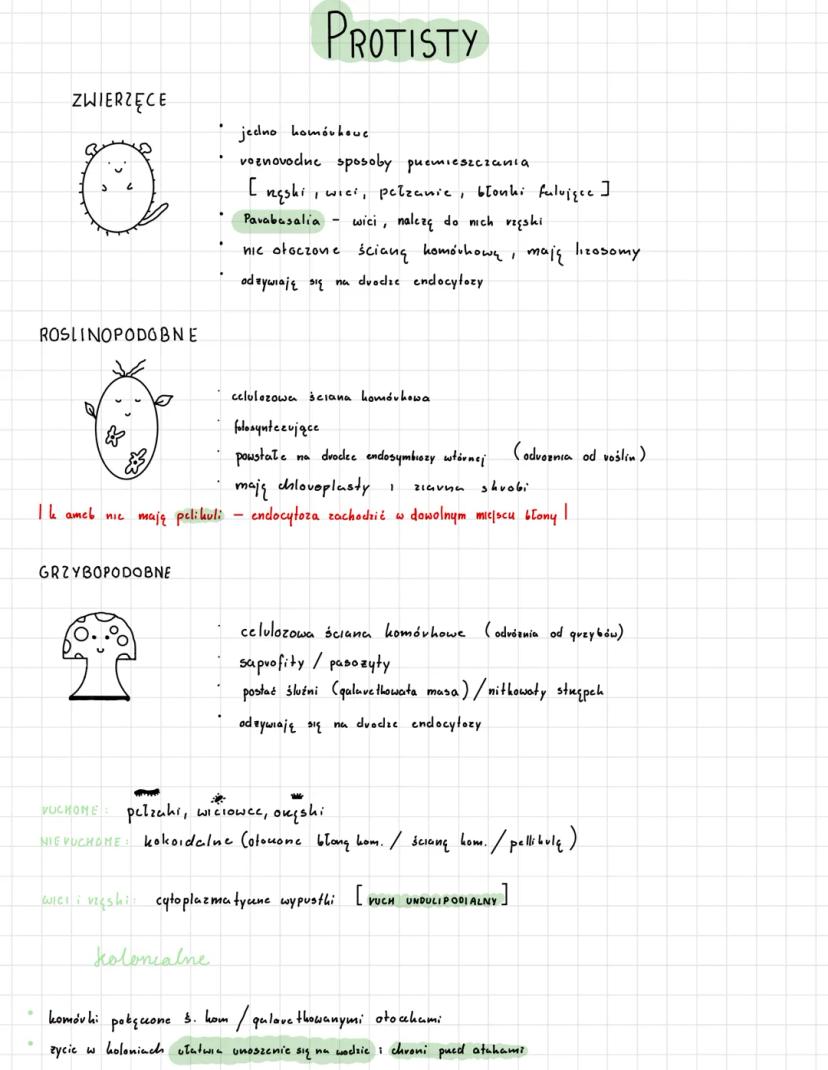 PROTISTY
ZWIERZĘCE
• jedno komórkowe
• roznorodne sposoby puemieszczania
[ rzęski , wici, pełzanie , błonki falujące ]
• Parabasalia – wici , nalczą do nich rzęski
• nie otoczone ścianą komórkową , mają lizosomy
• odżywiają się na drodze endocytozy
ROSLINOPODOBNE
• celulozowa ściana komórkowa
• fotosyntezujące
• powstałe na drodze endosymbiozy wtórnej (odróżnia od roślin)
• mają chloroplasty i ziarna skrobi
| k ameb nie mają pelikuli – endocytoza zachodzić w dowolnym miejscu błony |
GRZYBOPODOBNE
• celulozowa ściana komórkowe (odróżnia od grzybów)
• saprofity / pasożyty
• postać śluźni (galaretkowata masa) / nitkowaty strzępek
• odżywiają się na drodze endocytozy
RUCHOME: pełzaki, wiciowce, orzęski
NIERUCHOME: kokoidalne (otoczone błoną kom. / ścianą kom. / pellikulą )
wici i rzęski: cytoplazmatyczne wypustki [ RUCH UNDULIPODIALNY ]
kolonialne
• komórki połączone ś. kom / galaretkowanymi otoczkami
• życie w koloniach ułatwia unoszenie się na wodzie i chroni przed atakami